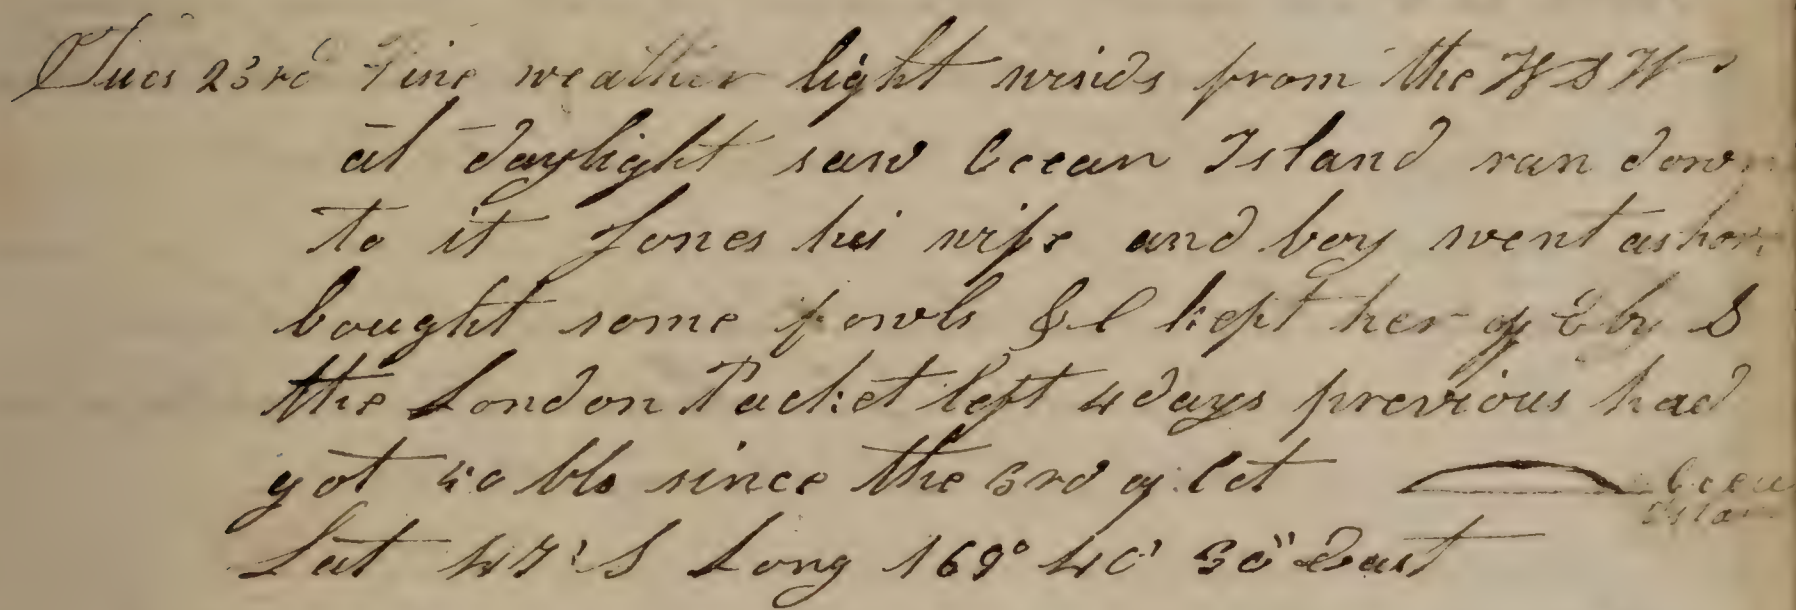 Tues 23rd Fine weather light winds from the W S W
at daylight saw Ocean Island ran down
to it Jones his wife and boy went ashore
bought some fowls &c kept her off E by S
the London Packet left 4 days previous had
got 40 bls since the 3rd of Oct
Ocean
Islan
Lat 47' S Long 169° 40' 30" East